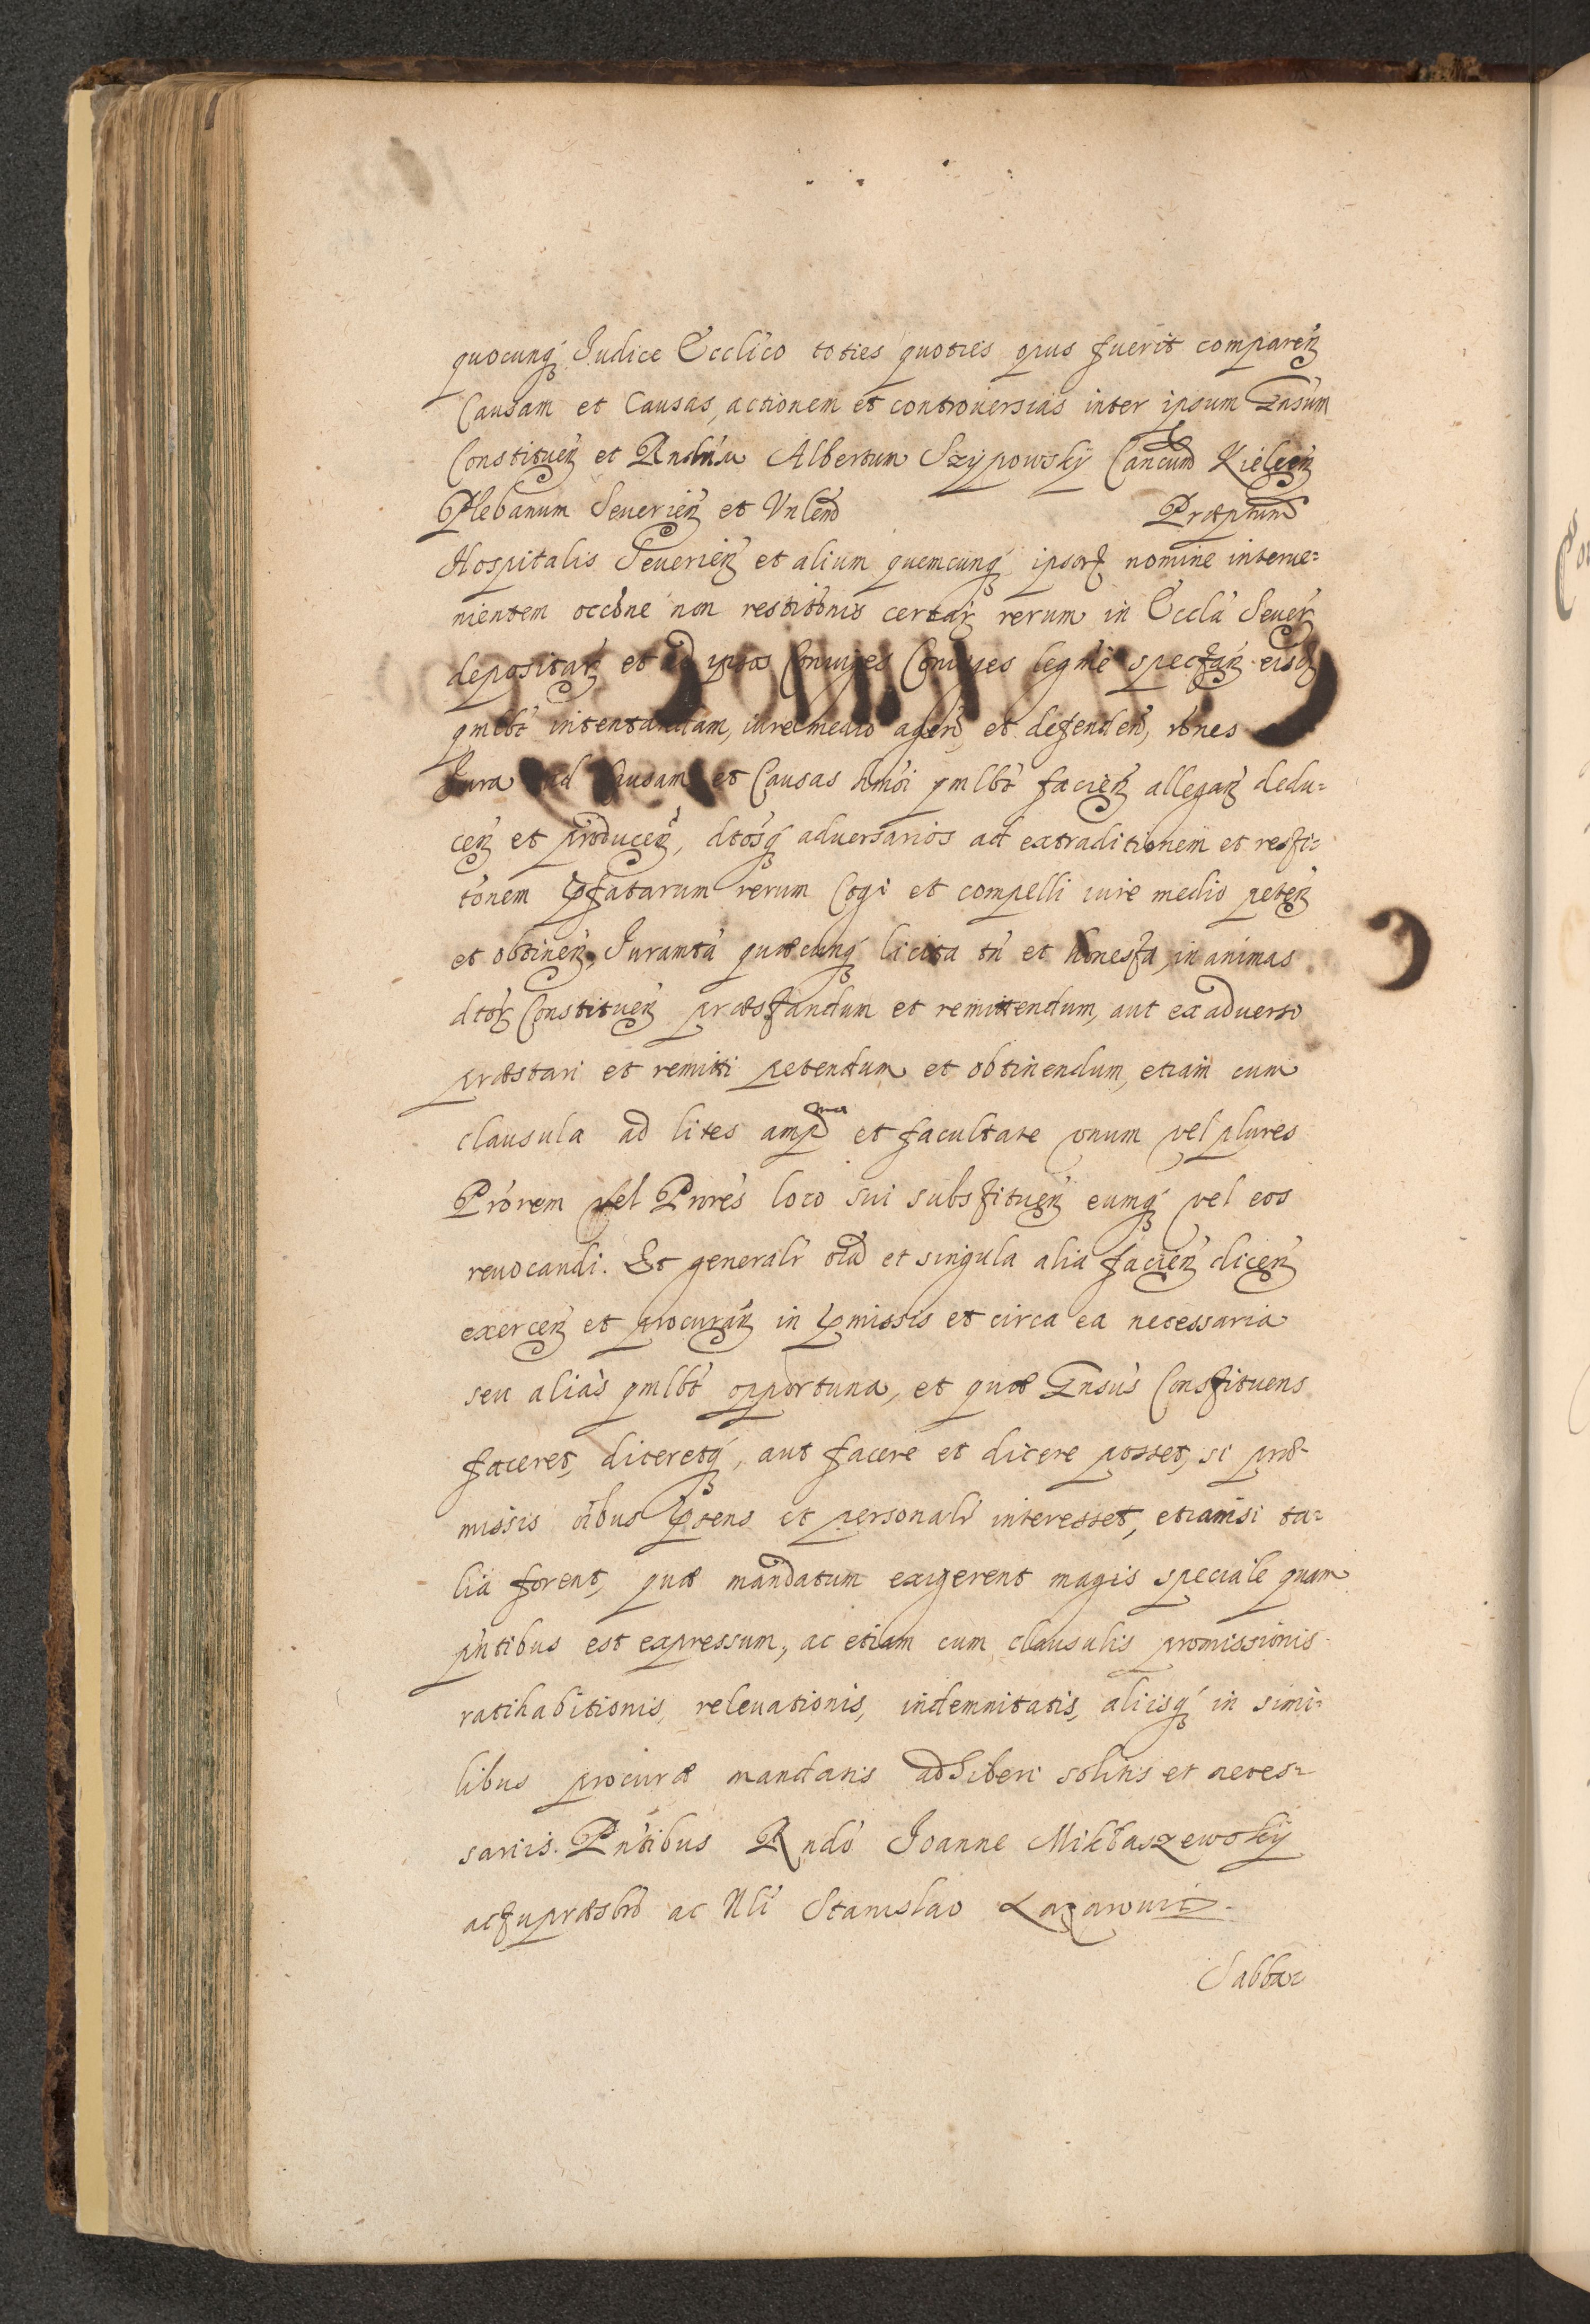 quocunq Iudice Ecclico toties quoties opus fuerit comparen
Causam et Causas, actionem et controuersias inter ipsum Gnsum
Constituen et Rndum Albertum Szypowsky Cancum Kielcen
Plebanum Seuerien et Vnlend Præptum
Hospitalis Seuerien et alium quemcunq ipsor nomine interue=
nientem occone non restitonis certar rerum in Eccla Seuer
depositar et ad ipsos Coniuges legme spectan eisq
qmlbt intentandam, iure medio agen, et defenden, rones
Iura ad Causam et Causas hmoi qmlbt facien allegan dedu=
cen et producen, dtosq aduersarios ad extraditionem et resti=
tonem pfatarum rerum Cogi et compelli iure medio peten
et obtinen, Iuramta quæcunq licita tn et honesta, in animas
dtor Constituen præstandum et remittendum, aut ex aduerso
præstari et remitti petendum et obtinendum, etiam cum
clausula ad lites ampma et facultate vnum vel plures
Prorem vel Prores loco sui substituen eumq vel eos
reuocandi. Et generalr oia et singula alia facien dicen
exercen et procuran in pmissis et circa ea necessaria
seu alias qmlbt opportuna, et quæ Gnsus Constituens
faceret, diceretq, aut facere et dicere posset, si præ=
missis oibus pstens et personalr interesset, etiamsi ta=
lia forent, quæ mandatum exigerent magis speciale quam
pntibus est expressum, ac etiam cum clausulis promissionis
ratihabitionis, releuationis, indemnitatis, aliisq in simi=
libus procuræ mandatis adhiberi solitis et neces=
sariis. Pntibus Rndo Ioanne Mikłaszewsky
actu præsbro ac Nli Stanislao Lazarowic
Sabba=